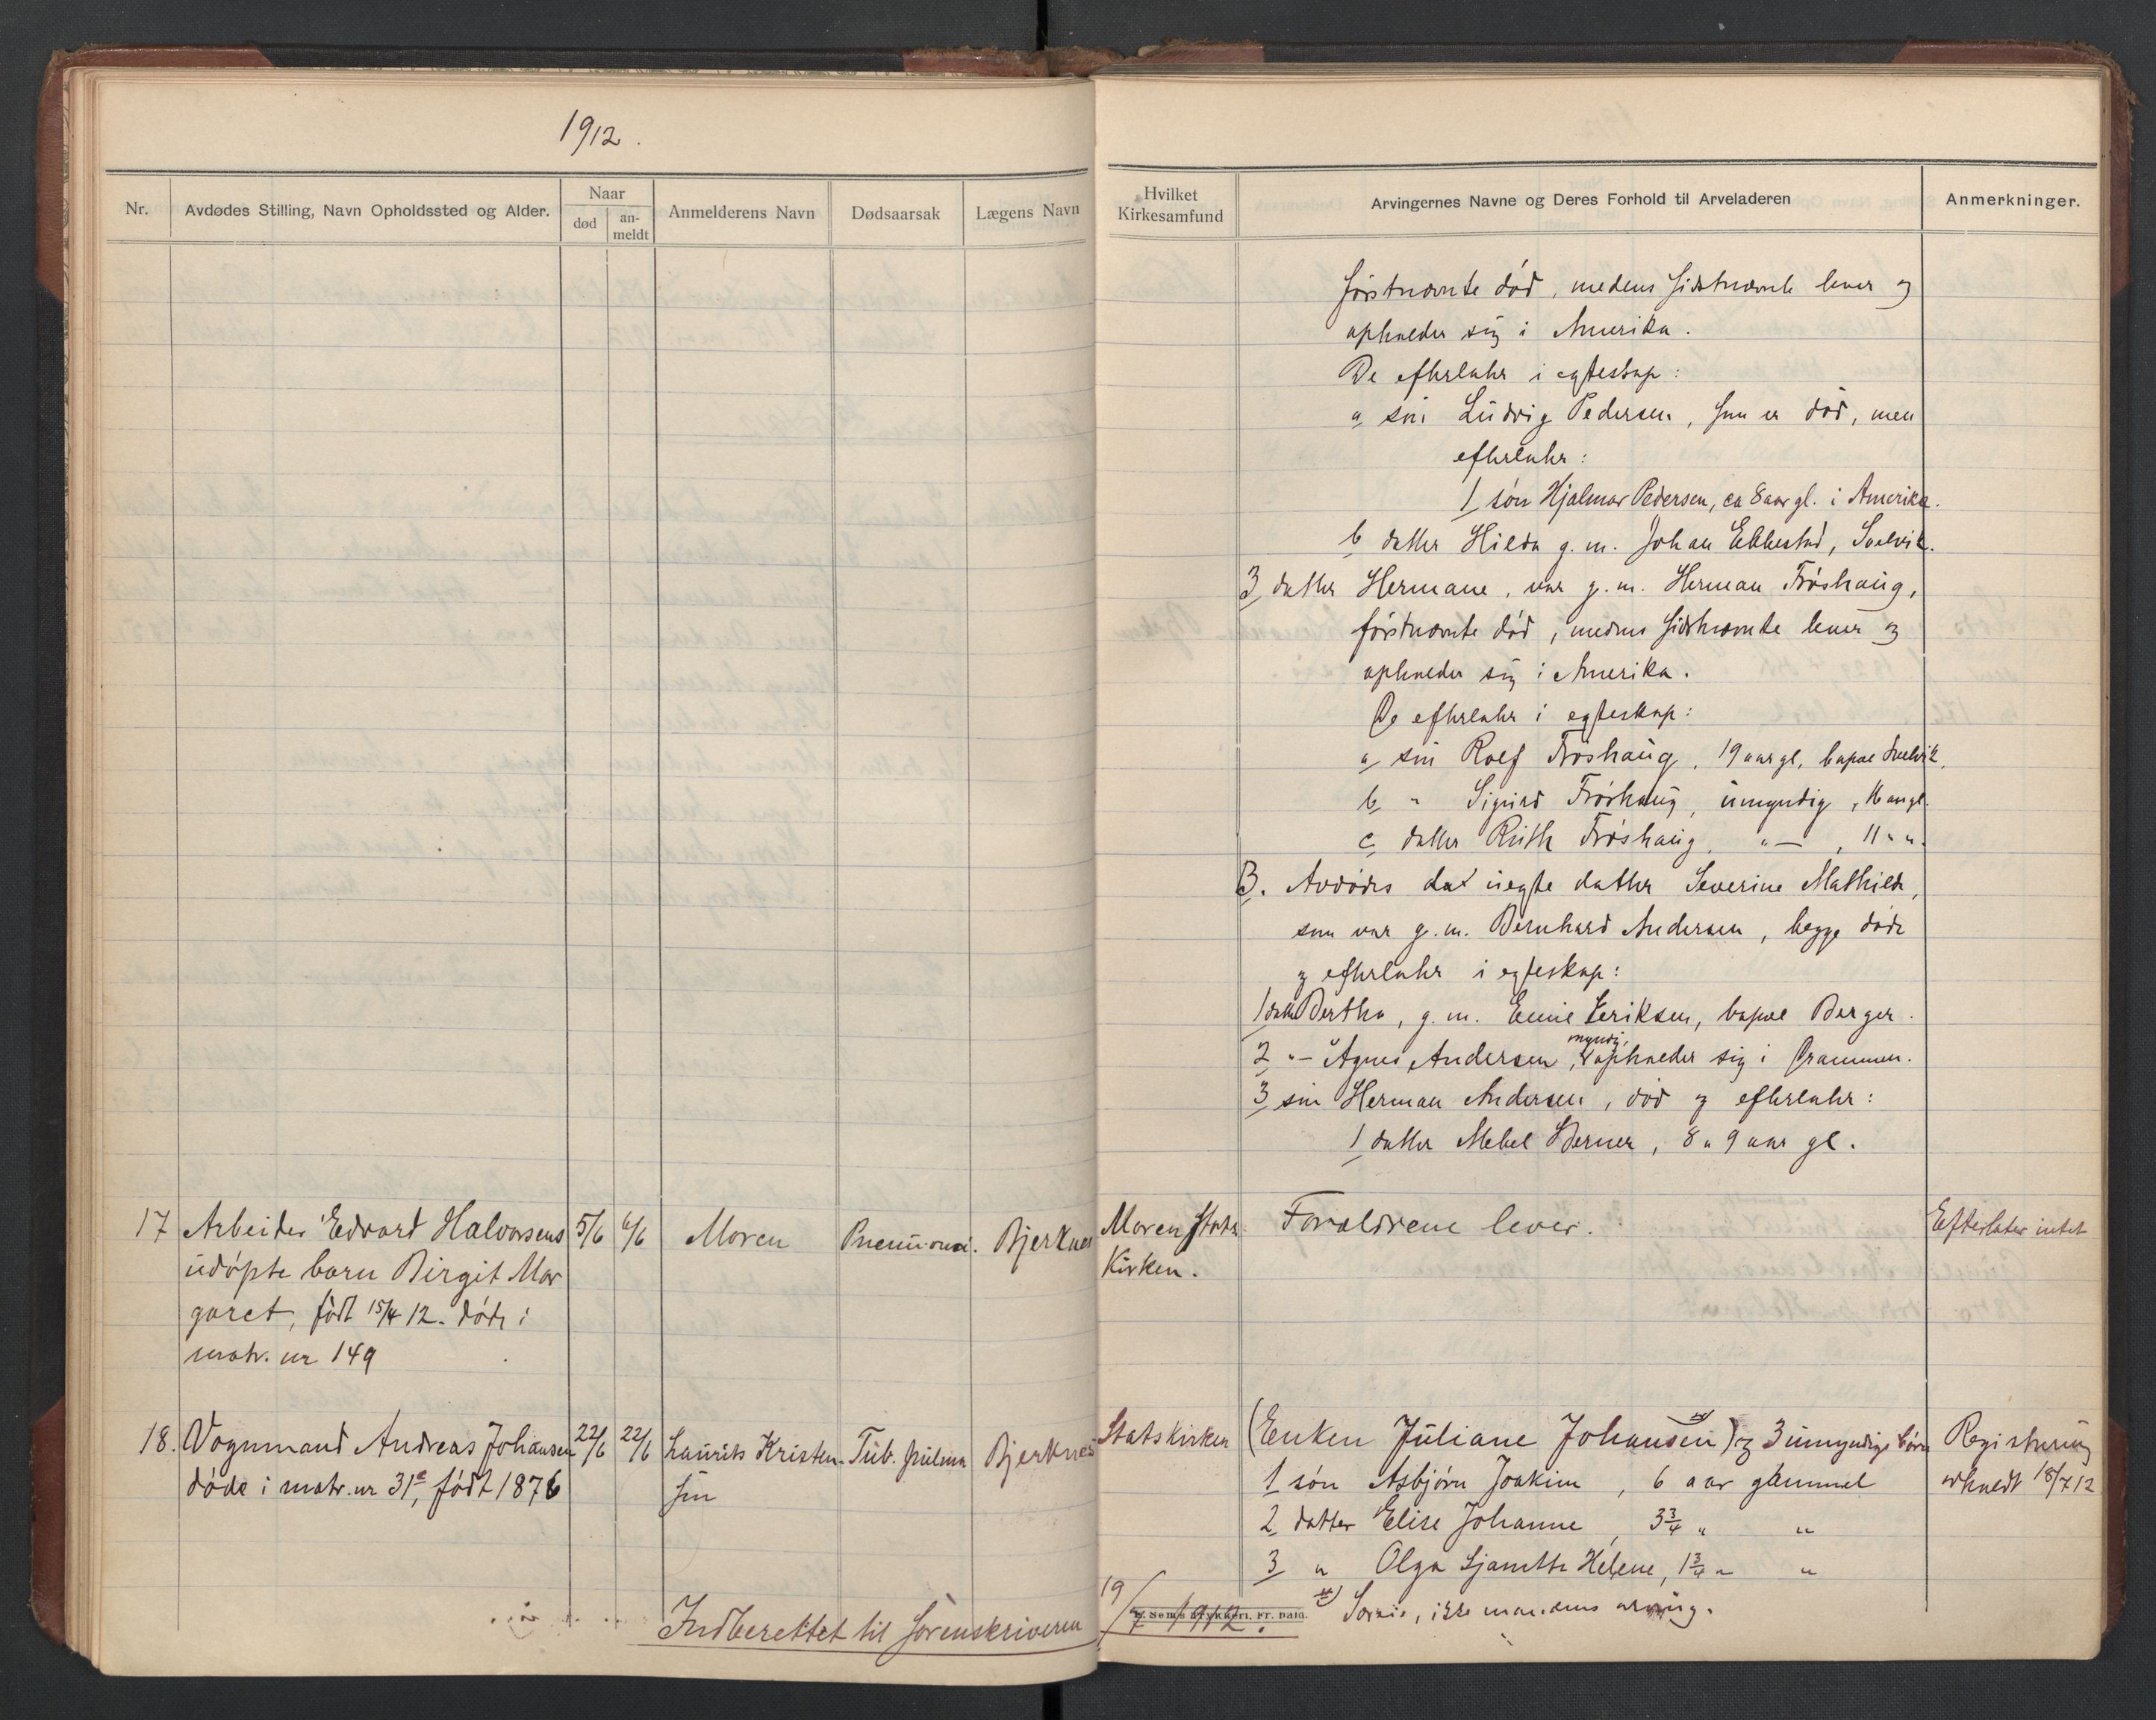 1912.
Nr.
Avdødes Stilling, Navn Opholdssted og Alder.
Naar
død
an-
meldt
Anmelderens Navn
Dødsaarsak
Lægens Navn
Hvilket
Kirkesamfund
Arvingernes Navne og Deres Forhold til Arveladeren
Anmerkninger.
førstnævnte død, medens sidstnævnte lever og
opholder sig i Amerika.
De efterlater i egteskap:
a søn Ludvig Pedersen, som er død, men
efterlater:
1 søn Hjalmar Pedersen, ca 8 aar gl. i Amerika.
b datter Hilda g.m. Johan Ebbestad, Svelvik.
3 datter Hermane, var g.m. Herman Frøshaug,
førstnævnte død, medens sidstnævnte lever og
opholder sig i Amerika.
De efterlater i egteskap:
a søn Rolf Frøshaug, 19 aar gl, bopæl Svelvik.
b " Sigurd Frøshaug, umyndig, 16 aar gl.
c datter Ruth Frøshaug, "—, 11 " ".
B. Avdødes uegte datter Severine Mathilde,
som var g.m. Bernhard Andersen, begge døde
og efterlater i egteskap:
1 datter Bertha, g.m. Eriksen, bopæl Berger.
2 "— Agnes Andersen, myndig, opholder sig i Drammen.
3 søn Herman Andersen, død og efterlater:
1 datter Mebel Berner, 8 a 9 aar gl.
17 Arbeider Edvard Halvorsens 5/6 6/6 Moren Pneumoni. Bjerknes Moren Stats Forældrene lever. Efterlater intet
udøpte barn Birgit Mar Kirken.
garet, født 15/4 12. døde i
matr. nr 149
18. Vognmand Andreas Johansen 22/6 22/6 Laurits Kristen- Tub. pulm. Bjerknes Statskirken (Enken Juliane Johansen x)) og 3 umyndige børn Registrering
døde i matr. nr 31a, født 1876 sen 1 søn Asbjørn Joakim, 6 aar gammel avholdt 18/7 12
2 datter Elise Johanne, 3¾ " "
3 " Olga Sjanette Helene, 1¾ " "
x) Særeie, ikke mandens arving.
Indberettet til Sorenskriveren 19/7 1912.